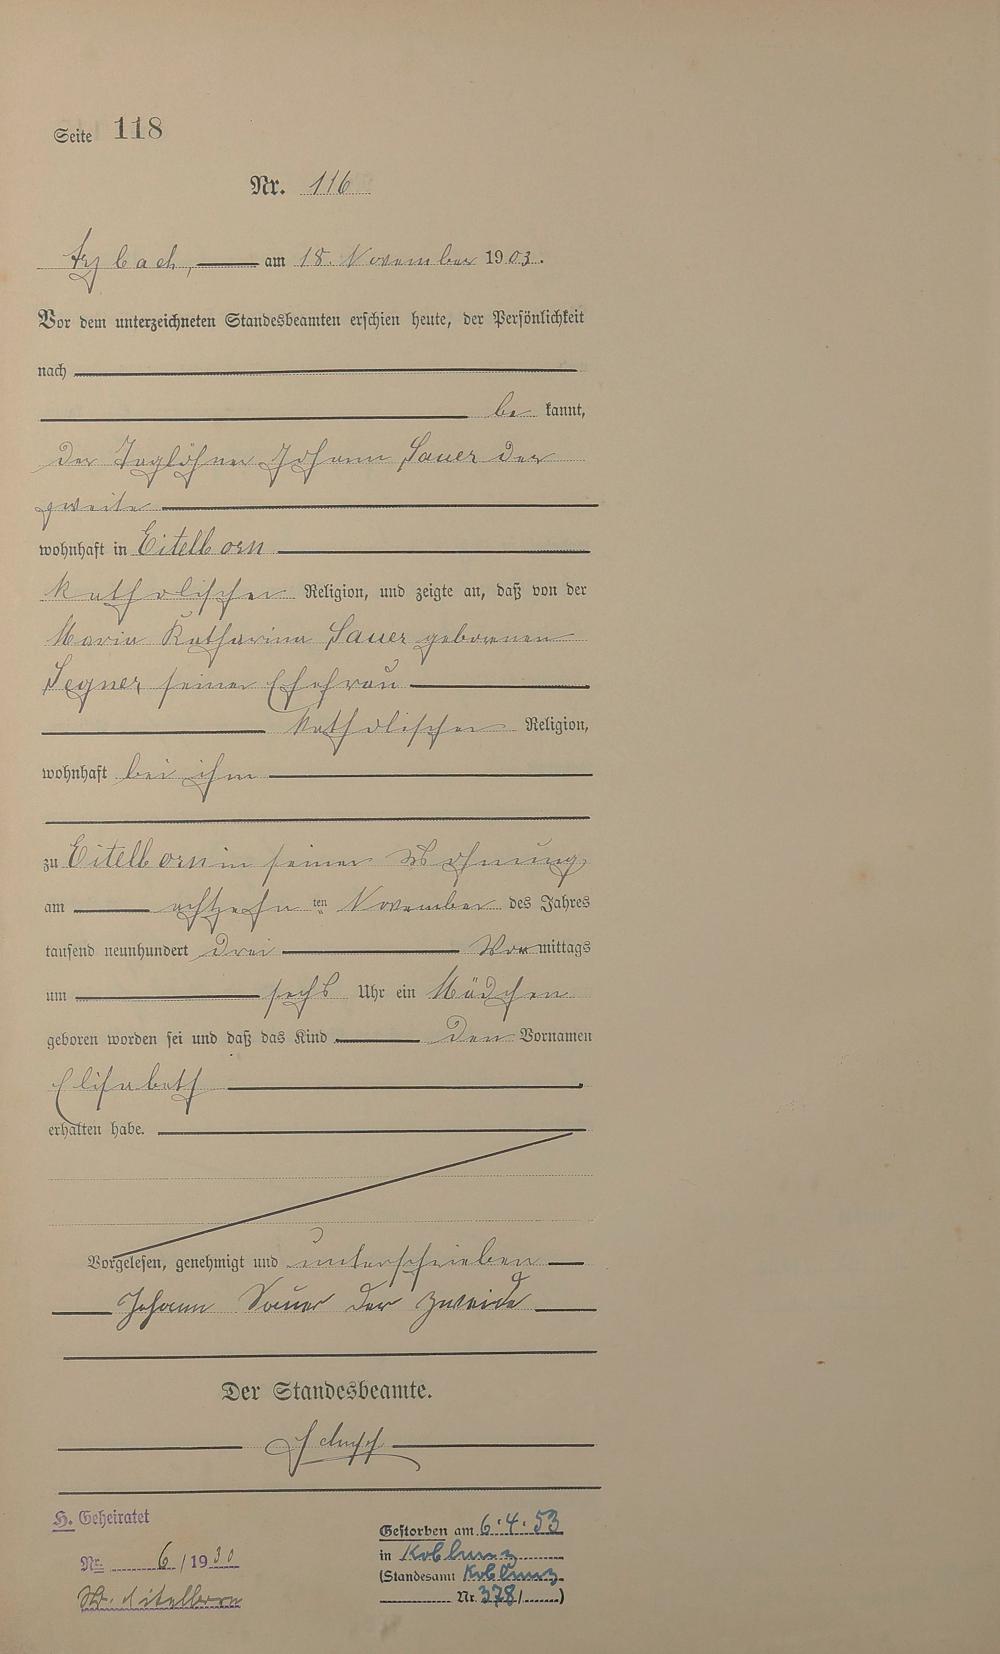 Seite 118
Nr. 116
Arzbach, am 18. November 1903.
Vor dem unterzeichneten Standesbeamten erschien heute, der Persönlichkeit
nach
be kannt,
der Taglöhner Johann Sauer der
zweite
wohnhaft in Eitelborn
katholischer Religion, und zeigte an, daß von der
Maria Katharina Sauer geborenen
Segner seiner Ehefrau
katholischer Religion,
wohnhaft bei ihm
zu Eitelborn in seiner Wohnung
am achtzehn ten November des Jahres
tausend neunhundert drei Vormittags
um sechs Uhr ein Mädchen
geboren worden sei und daß das Kind den Vornamen
Elisabeth
erhalten habe.
Vorgelesen, genehmigt und unterschrieben
Johann Sauer der zweide
Der Standesbeamte.
H. Geheiratet
Nr. 6/1930
Eitelborn
Gestorben am 6.4.53
in Koblenz
(Standesamt Koblenz
Nr. 378/)